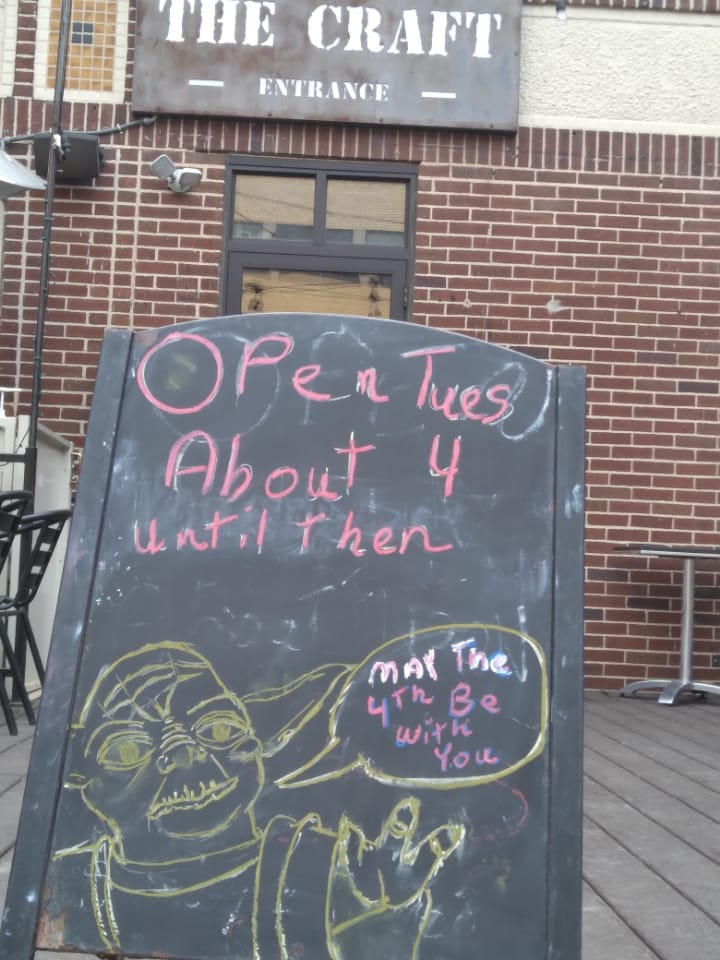 THE CRAFT
ENTRANCE
OPen Tues
About 4
until then
MAY The
4Th Be
with
You